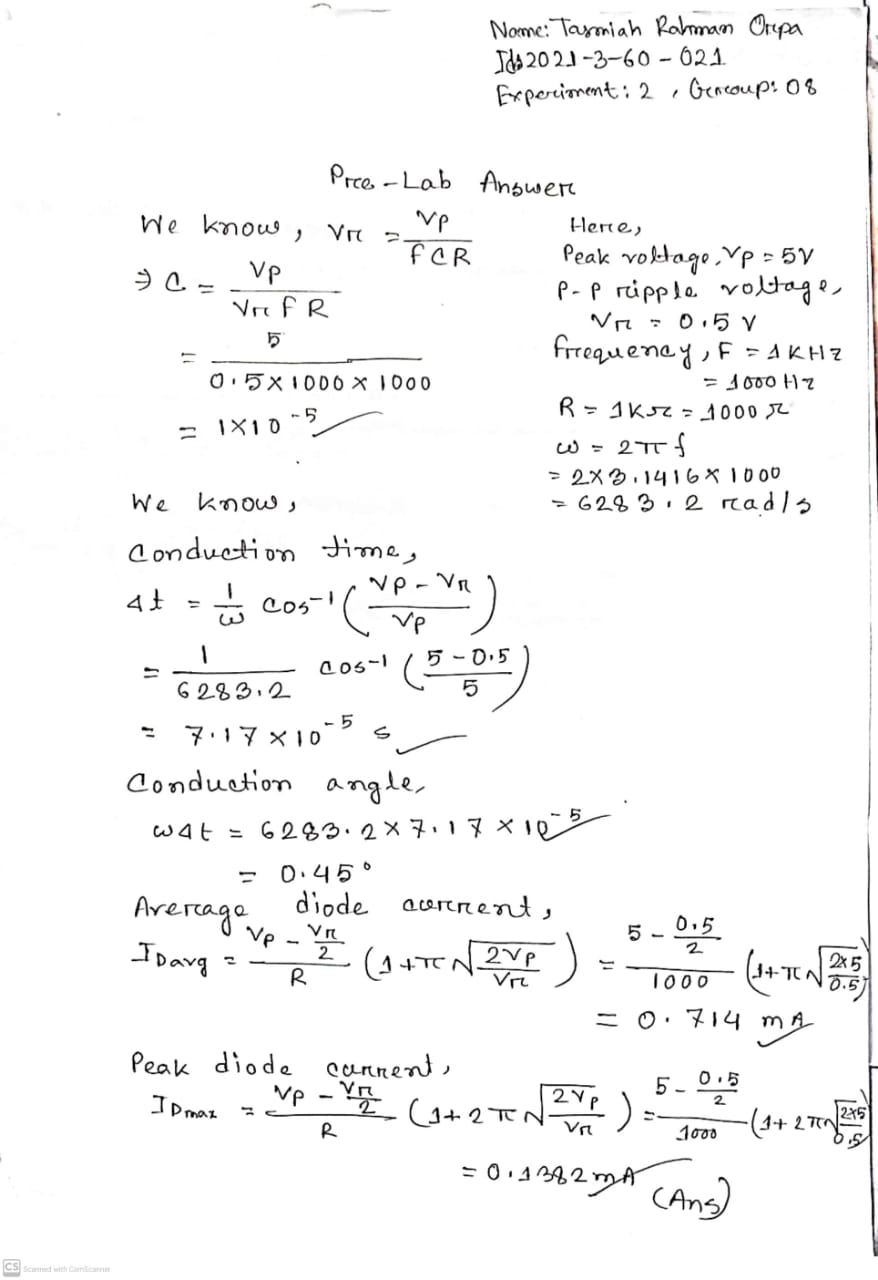 Name: Tasmiah Rahman Oripa
Id: 2021-3-60-021
Experiment: 2, Group: 08
Pre-Lab Answer
We know, Vr = Vp / fCR
⇒ C = Vp / Vr f R
= 5 / 0.5 × 1000 × 1000
= 1×10^-5
Here,
Peak voltage, Vp = 5V
P-P ripple voltage,
Vr = 0.5 V
frequency, F = 1KHz
= 1000 Hz
R = 1KΩ = 1000 Ω
ω = 2πf
= 2×3.1416×1000
= 6283.2 rad/s
We know,
Conduction time,
Δt = 1/ω cos^-1 (Vp - Vr / Vp)
= 1 / 6283.2 cos^-1 (5 - 0.5 / 5)
= 7.17 × 10^-5 s
Conduction angle,
ωΔt = 6283.2 × 7.17 × 10^-5
= 0.45°
Average diode current,
IDavg = Vp - Vr/2 / R (1+π √2Vp/Vr) = 5 - 0.5/2 / 1000 (1+π √2×5/0.5)
= 0.714 mA
Peak diode current,
IDmax = Vp - Vr/2 / R (1+2π √2Vp/Vr) = 5 - 0.5/2 / 1000 (1+2π √2×5/0.5)
= 0.1382 mA
(Ans)
CS Scanned with CamScanner